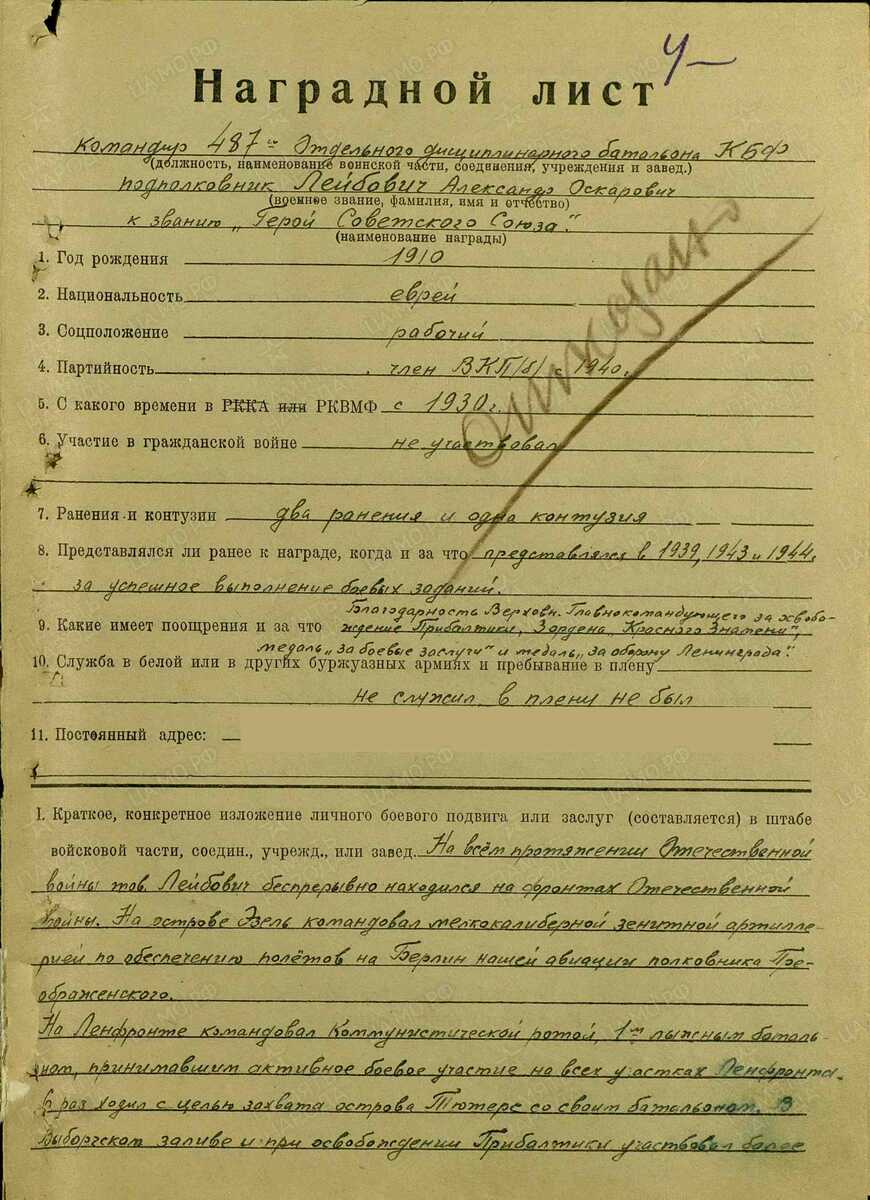 Ч-
Наградной лист
Командир 487го Отдельного дисциплинарного батальона КБФ
(должность, наименование воинской части, соединения, учреждения и завед.)
подполковник Лейбович Александр Оскарович
(военное звание, фамилия, имя и отчество)
к званию „Герой Советского Союза."
(наименование награды)
Отказать
1. Год рождения 1910
2. Национальность еврей
3. Соцположение рабочий
4. Партийность член ВКП/б/ с 1940г.
5. С какого времени в РККА или РКВМФ с 1930г.
6. Участие в гражданской войне не участвовал
7. Ранения и контузии два ранения и одна контузия
8. Представлялся ли ранее к награде, когда и за что представлялся в 1939, 1943 и 1944г.
за успешное выполнение боевых заданий.
Благодарность Верховн. Главнокомандующего за освобо-
9. Какие имеет поощрения и за что ждение Прибалтики, 3 ордена „Красного Знамени",
медаль „За боевые заслуги" и медаль „За оборону Ленинграда".
10. Служба в белой или в других буржуазных армиях и пребывание в плену
не служил, в плену не был
11. Постоянный адрес:
I. Краткое, конкретное изложение личного боевого подвига или заслуг (составляется) в штабе
войсковой части, соедин., учрежд., или завед. На всём протяжении Отечественной
войны тов. Лейбович беспрерывно находился на фронтах Отечественной
войны. На острове Эзель командовал мелкокалиберной зенитной артилле-
рией по обеспечению полётов на Берлин нашей авиации полковника Пре-
ображенского.
На Ленфронте командовал Коммунистической ротой, 1-м лыжным баталь-
оном, принимавшим активное боевое участие на всех участках Ленфронта.
6 раз ходил с целью захвата острова Тютерс со своим батальоном. В
Выборгском заливе и при освобождении Прибалтики участвовал более
ЦАМО.РФ